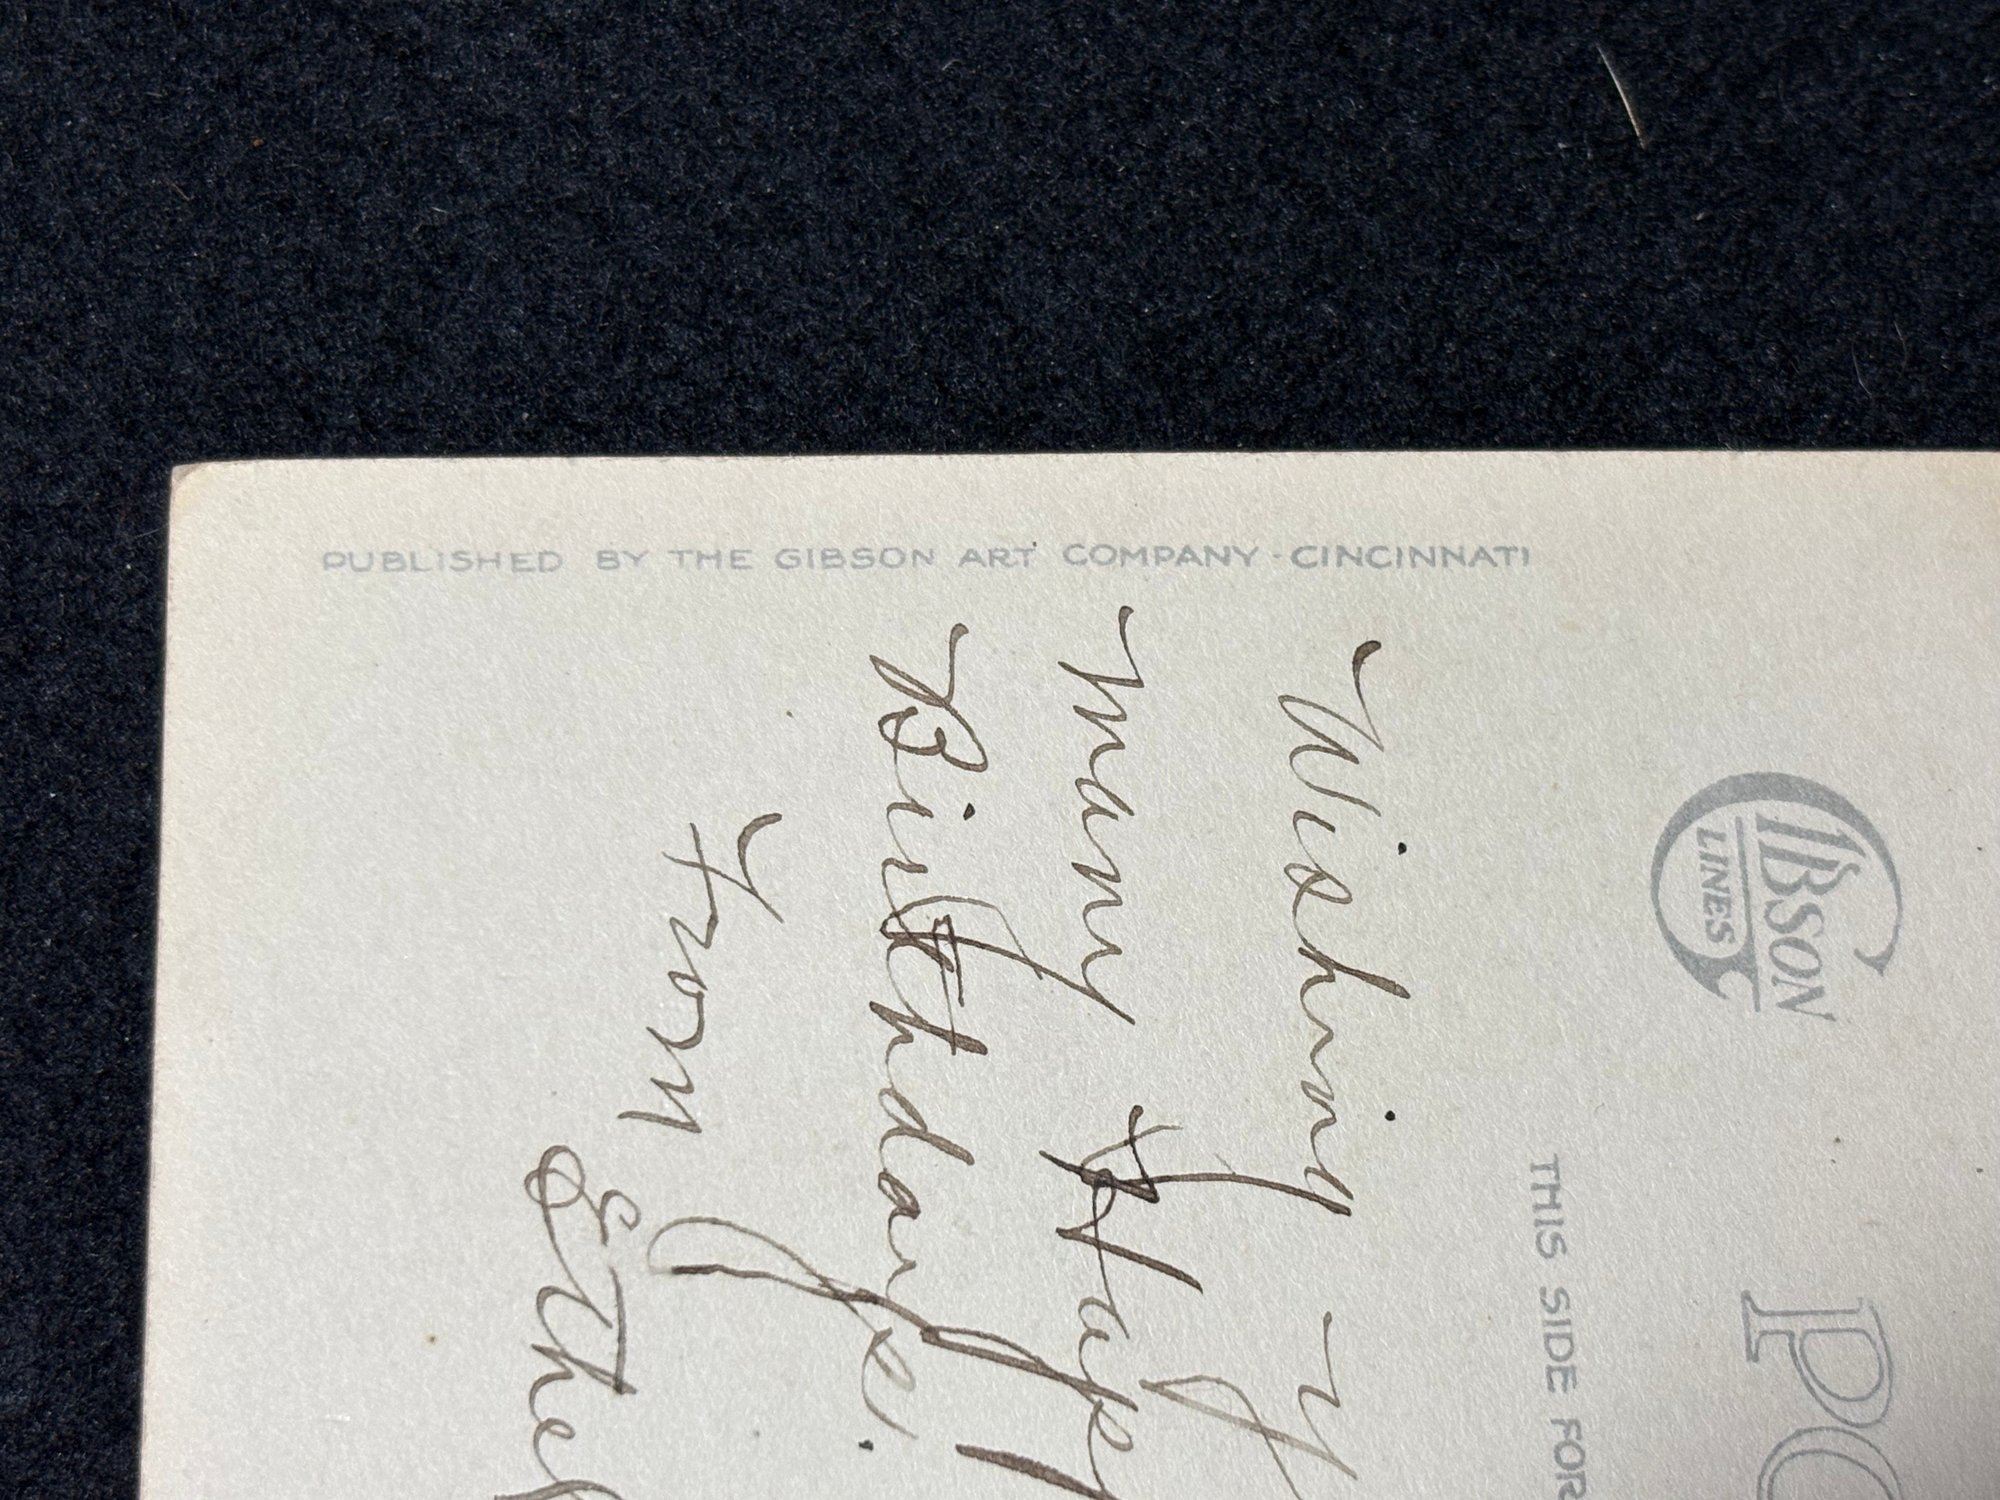 PUBLISHED BY THE GIBSON ART COMPANY - CINCINNATI
GIBSON
LINES
PO
THIS SIDE FOR
Wishing y
Many Hap
Birthdays.
From
Ethel